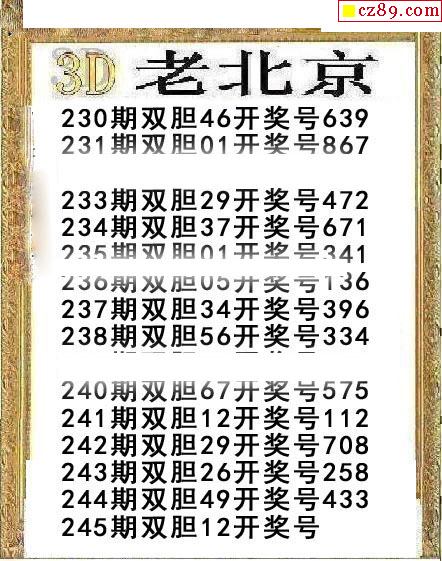 cz89.com
3D 老北京
230期双胆46开奖号639
231期双胆01开奖号867
233期双胆29开奖号472
234期双胆37开奖号671
235期双胆01开奖号341
236期双胆05开奖号136
237期双胆34开奖号396
238期双胆56开奖号334
240期双胆67开奖号575
241期双胆12开奖号112
242期双胆29开奖号708
243期双胆26开奖号258
244期双胆49开奖号433
245期双胆12开奖号